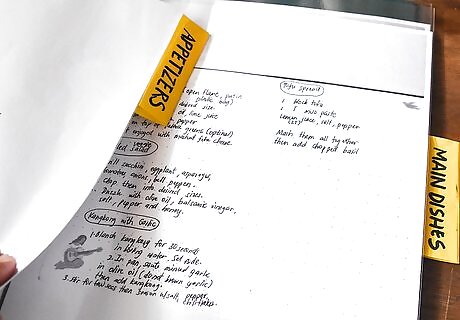 APPETIZERS
(open flame, put in
plastic bag)
desired size.
oil, lime juice
pepper
on top greens (optional)
enjoyed with walnut feta cheese.
Salad
zucchini, eggplant, asparagus,
onions, bell peppers.
chop them into desired sizes.
with olive oil, balsamic vinegar,
salt, pepper and honey.
Kangkong with Garlic
1. Blanch kangkong for 30 seconds
in boiling water. Set aside.
2. In pan, saute minced garlic
in olive oil (do not brown garlic)
then add kangkong.
3. Stir fry then season w/ salt, pepper,
Tofu Spread
1 block tofu
1 T miso paste
Lemon juice, salt, pepper
Mash them all together
then add chopped basil
MAIN DISHES